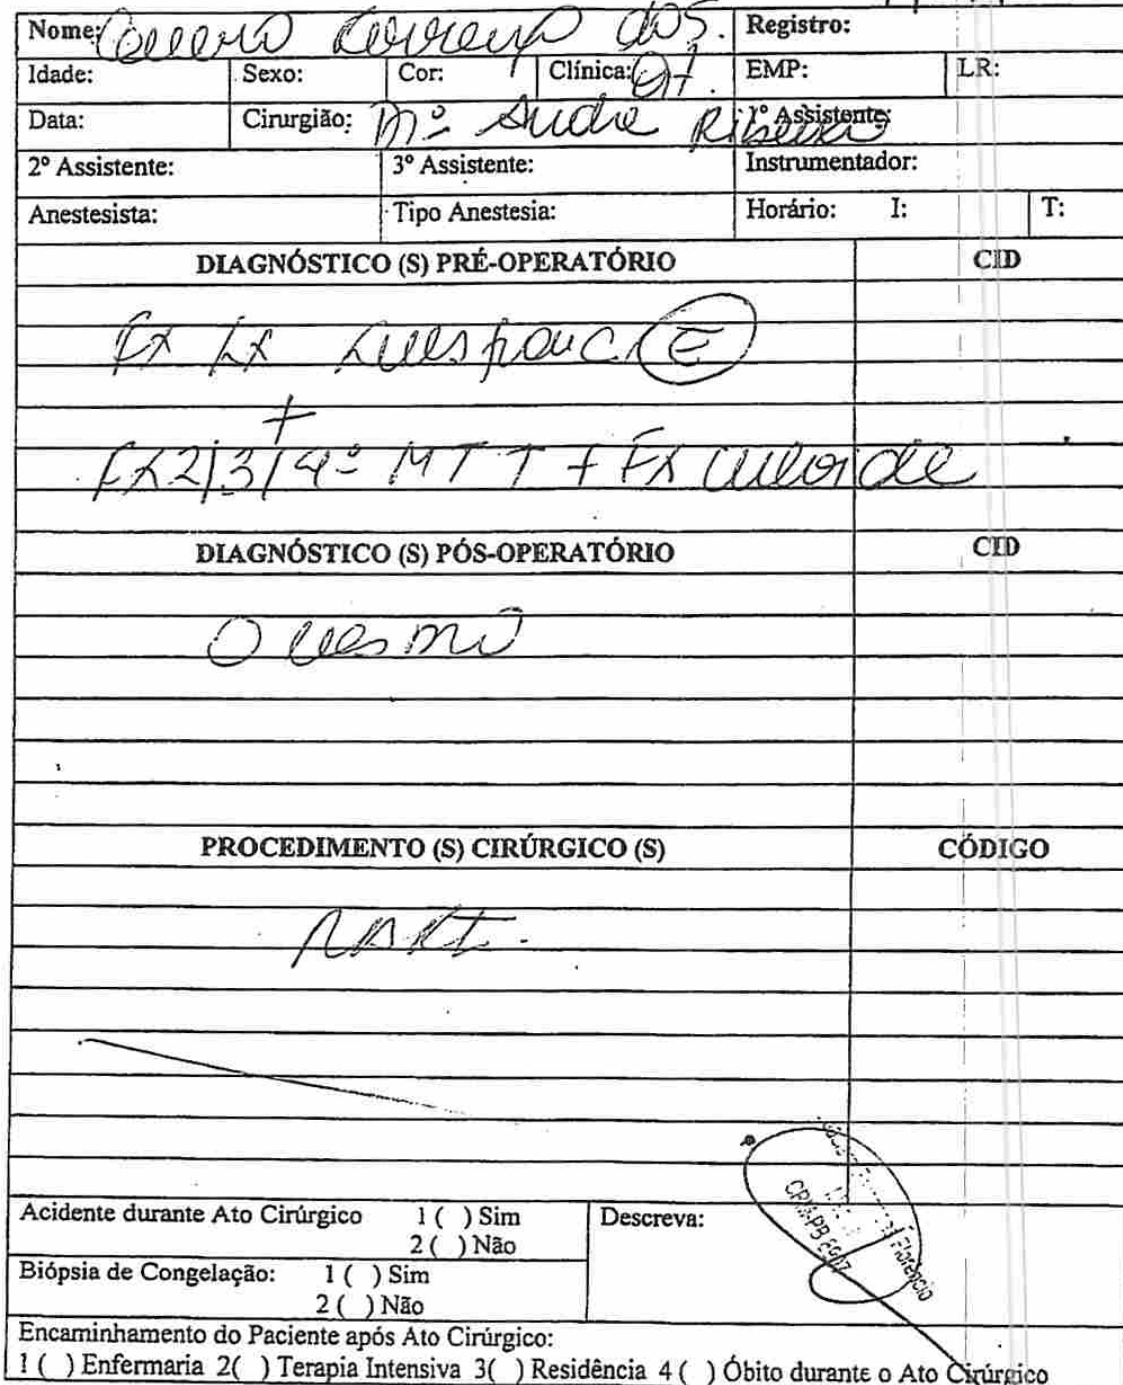 Nome: dos. Registro:
Idade: Sexo: Cor: Clínica: Ot. EMP: LR:
Data: Cirurgião: Mº André Ribeiro 1º Assistente:
2º Assistente: 3º Assistente: Instrumentador:
Anestesista: Tipo Anestesia: Horário: I: T:
DIAGNÓSTICO (S) PRÉ-OPERATÓRIO CID
Fx Lx E
+
Fx 2/3/4º MTT + Fx cuboide
DIAGNÓSTICO (S) PÓS-OPERATÓRIO CID
O mesmo
PROCEDIMENTO (S) CIRÚRGICO (S) CÓDIGO
Acidente durante Ato Cirúrgico 1 ( ) Sim Descreva:
2 ( ) Não
CRM-PB
Florencio
Biópsia de Congelação: 1 ( ) Sim
2 ( ) Não
Encaminhamento do Paciente após Ato Cirúrgico:
1 ( ) Enfermaria 2( ) Terapia Intensiva 3( ) Residência 4 ( ) Óbito durante o Ato Cirúrgico